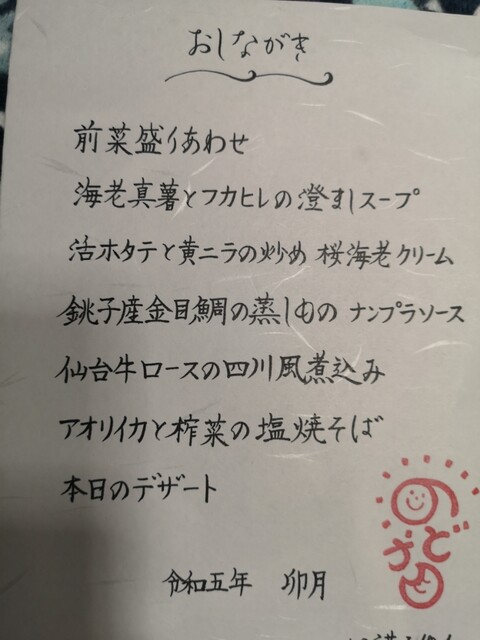 おしながき
前菜盛りあわせ
海老真薯とフカヒレの澄ましスープ
活ホタテと黄ニラの炒め 桜海老クリーム
銚子産金目鯛の蒸しもの ナンプラソース
仙台牛ロースの四川風煮込み
アオリイカと榨菜の塩焼そば
本日のデザート
令和五年 卯月